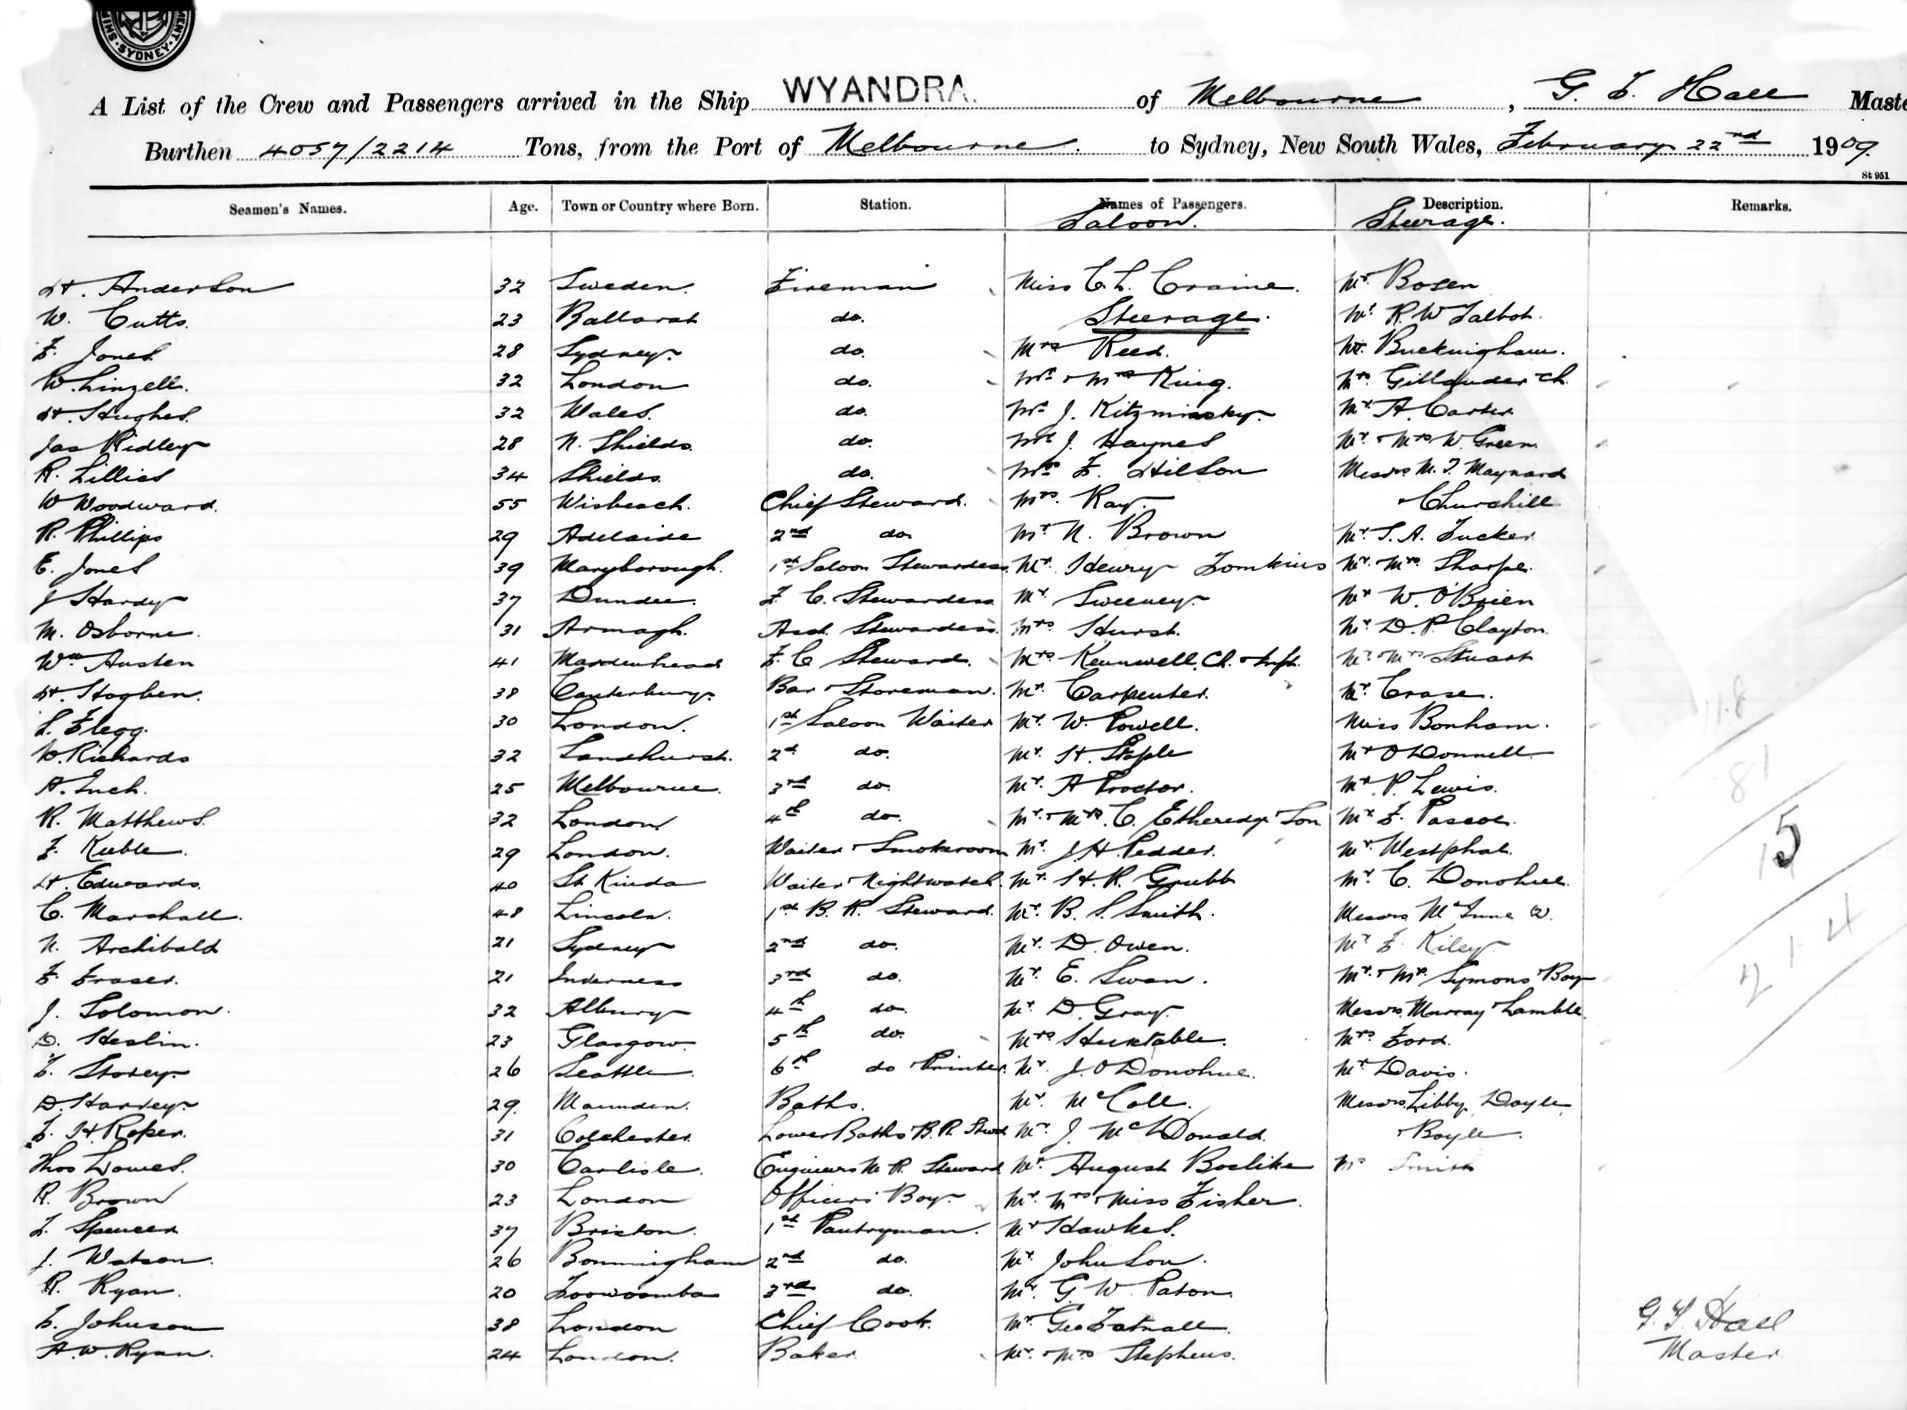 SYDNEY
A List of the Crew and Passengers arrived in the Ship WYANDRA. of Melbourne, G. F. Hall Maste
Burthen 4057/2214 Tons, from the Port of Melbourne. to Sydney, New South Wales, February 22nd 1909.
St 951
Seamen's Names. Age. Town or Country where Born. Station. Names of Passengers. Description. Remarks.
Saloon. Steerage.
H. Anderson 32 Sweden. Fireman Miss C. L. Craine. Mr Bosen
W. Cutts. 23 Ballarat do. Steerage. Mr R. W Talbot.
F. Jones. 28 Sydney. do. Mrs Reed. Mr. Buckingham.
W. Linzell. 32 London do. Mr & Mrs King. Mrs Gillander & Ch.
H. Hughes. 32 Wales. do. Mr J. Kitzminsky. Mr A. Carter
Jas Ridley 28 N. Shields. do. Mr J. Haynes Mr & Mrs W. Green
R. Lillies 34 Shields. do. Mr F. Hilson Messrs M. T. Maynard
W Woodward. 55 Wisbeach. Chief Steward. Mrs. Ray. & Churchill
R. Phillips 29 Adelaide 2nd do. Mr N. Brown Mr T. A. Tucker.
E. Jones 39 Maryborough. 1st Saloon Stewardess. Mr. Henry Tomkins Mr. Mrs. Sharpe.
J Hardy 37 Dundee. F. C. Stewardess Mr. Sweeney. Mr W. O'Brien
M. Osborne. 31 Armagh. Asst. Stewardess. Mrs Hurst. Mr D. P. Clayton.
Wm Austen 41 F. C Steward. Mrs Kennwell, Ch. & Inft. Mr. Mrs Stuart
H. Hogben. 38 Canterbury. Bar & Storeman. Mr. Carpenter. Mr. Crase.
L. Flegg. 30 London. 1st Saloon Waiter Mr. W. Powell. Miss Bonham.
W. Richards 32 Sandhurst. 2d do. Mr. H. Staple Mr O'Donnell
A. Inch. 25 Melbourne. 3rd do. Mr. A Proctor. Mr. P. Lewis.
R. Matthews. 32 London 4th do. Mr. & Mrs. C. Etheredge & Son Mr. F. Pascoe.
F. Keeble. 29 London. Waiter & Smokeroom Mr. J. H. Pedder. Mr Westphal.
H. Edwards. 40 St Kinda Waiter & Nightwatch. Mr. H. R. Grubb Mr. C. Donohue.
C. Marshall. 48 Lincoln. 1st B. R. Steward. Mr. B. S. Smith. Messrs
N. Archibald 21 Sydney 2nd do. Mr. D. Owen. Mr F. Kiley
F. Fraser. 21 Inverness 3rd do. Mr. E. Swan. Mr. & Mrs. Symons & Boy
J. Solomon. 32 Albury 4th do Mr D. Gray. Messrs. Murray & Lamble.
D. Heslin. 23 Glasgow. 5th do. Mrs Huxtable. Mrs Ford.
F. Storey. 26 Seattle. 6th do & Printer. Mr. J. O'Donohue. Mr Davis.
D. Harvey. 29. Baths. Mr. McColl. Messrs Libby, Doyle
F. H. Roper. 31 Colchester. Lower Baths & B. R. Stwd Mr. J. McDonald. & Boyle.
Thos Lowes. 30 Carlisle. Engineers M. R. Steward. Mr. August Boslike Mr Smith
R. Brown 23 London Officers' Boy. Mr. Mrs & Miss Fisher.
F. Spencer 37 Brixton. 1st Pantryman. Mr Hawkes.
J. Watson. 26 Bonmingham 2nd do. Mr. Johnson.
R. Ryan. 20 Toowoomba 3rd do. Mr. G. W Paton.
F. Johnson 38 London Chief Cook. Mr. Geo Tatnall.
A. W. Ryan. 24 London. Baker. Mr. Mrs Stephens.
118
81
15
214
G. F. Hall
Master